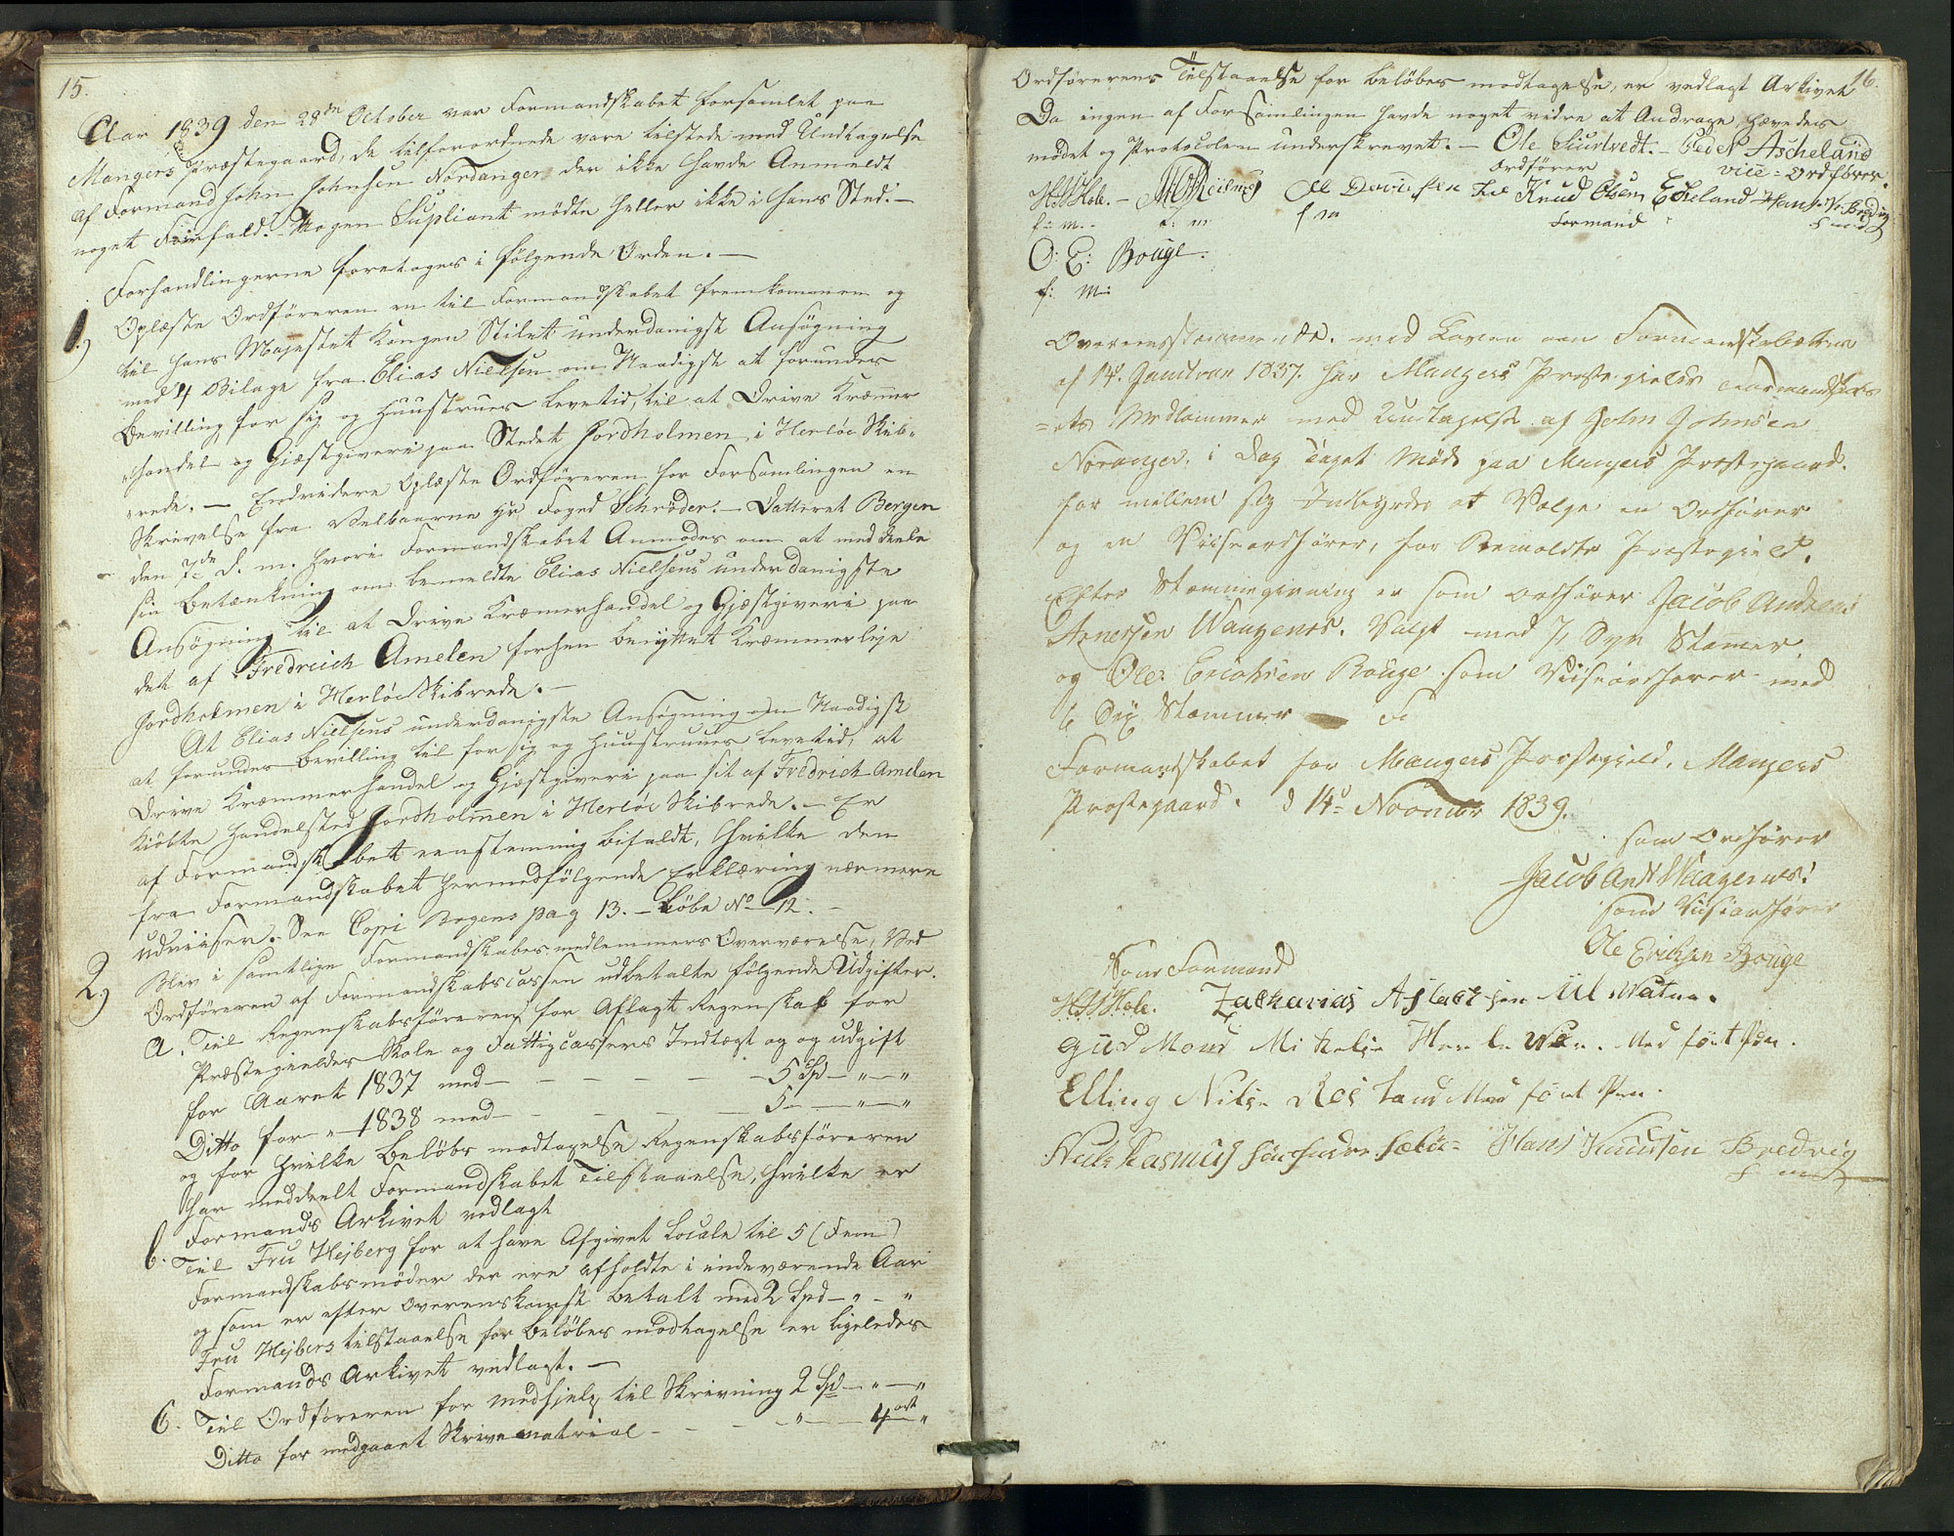 15.
Aar 1839 den 28de October var Formandskabet forsamlet paa
Mangers Præstegaard, de tilforordnede vare tilstede med Undtagelse
af Formand John Johnsen Nordanger der ikke havde Anmeldt
noget Forfald. Nogen Supliant mødte heller ikke i hans Sted. —
Forhandlingerne foretoges i følgende Orden. —
1.) Oplæste Ordføreren en til Formandskabet fremkommen og
til Hans Majestæt Kongen Stilet underdanigst Ansøgning
med 4 Bilage fra Elias Nielsen om Naadigst at forundes
Bevilling for sig og Huustrues Levetid, til at Drive Kræmmer
handel og Gjæstgiveri paa Stedet Jordholmen i Herløe Skib-
rede. — Endvidere Oplæste Ordføreren for Forsamlingen en
Skrivelse fra Velbaarne Hr Foged Schrøder. — Datteret Bergen
den 7de d. m. hvori Formandskabet Anmodes om at meddeele
sin Betænkning om bemeldte Elias Nielsens underdanigste
Ansøgning til at Drive Kræmerhandel og Gjæstgiveri paa
det af Fredreich Amelen forhen benyttet Kræmmerleje
Jordholmen i Herløe Skibrede. —
At Elias Nielsens underdanigste Ansøgning om Naadigst
at forundes Bevilling til for sig og Huustrues Levetid, at
Drive Kræmmerhandel og Gjæstgiveri paa sit af Fredrich Amelen
kiöbte Handelsted Jordholmen i Herløe Skibrede. — Er
af Formandskabet eenstemmig bifaldt, hvilke den
fra Formandskabet hermedfølgende Erklæring nærmere
udviiser. See Copi Bogens pag 13. — Løbe No 12. —
2.) Blev i samtlige Formandskabesmedlemmers Overværelse, Ved
Ordføreren af Formandskabscassen udbetalte følgende Udgifter.
A. Til Regenskabsføreren for Aflagt Regenskab for
Præstegieldes Skole og Fattigcassers Indtægt og og udgift
for Aaret 1837 med — — — — — — 5 Spd — " — "
Ditto for " 1838 med — — — — — 5 — — " — "
og for hvilke Beløbs modtagelse Regenskabsføreren
har meddeelt Formandskabet Tilstaaelse, hvilke er
Formands Arkivet vedlagt
b. Til Fru Hejberg for at have Afgivet Locale til 5 (Fem)
Formandskabsmøder der ere afholdte i indeværende Aar
og som er efter Overenskomst betalt med 2 Spd — " — "
Fru Hejbergs tilstaaelse for Beløbes modtagelse er ligeledes
Formands Arkivet vedlagt. —
C. Til Ordføreren for medhjelp til Skrivning 2 Spd — " — "
Ditto for medgaaet Skrivematrial — — — " — 4 ort "
16.
Ordførerens Tilstaaelse for Beløbes modtagelse, er vedlagt Arkivet
Da ingen af Forsamlingen havde noget videre at Andrage hævedes
mødet og Protocolen underskrevet. — Ole Peder Ascheland
Ordfører vice-Ordfører.
HHHole. — Ole Davidsen Knud Olsen Echeland Hans K. Bredvig
f: m. f: m f m Formand f m
O: E: Bouge.
f: m:
Overensstemmende. med Loven om Formandskaberne
af 14. Januar 1837. har Mangers Prestegields Formandskab
=ets Medlemmer med Undtagelse af John Johnsen
Noranger, i Dag taget Møde paa Mangers Præstegaard.
for mellem sig Indbyrdes at Vælge en Ordfører
og en Viiseordfører, for Bemeldte Præstegield.
Efter Stemmegivning er som ordfører Jacob Andreas
Arnessen Waagenes. Valgt med 7, Syv Stemer
og Ole Erichsen Bouge som Viiseordfører med
6 Sex Stemmer
Formandskabet for Mangers Prestegield. Mangers
Prestegaard. d 14d Novmbr 1839.
som Ordfører
Jacob And Waagenes.
som Viiseordfører
Ole Ericksen Bouge
Som Formænd
HHHole. Zacharias Aslach sen
Gud Mond Mikkelse Med ført Pen.
Elling Nilsen Med ført Pen.
Niels Rasmus sen Hans Knudsen Bredvig
f m